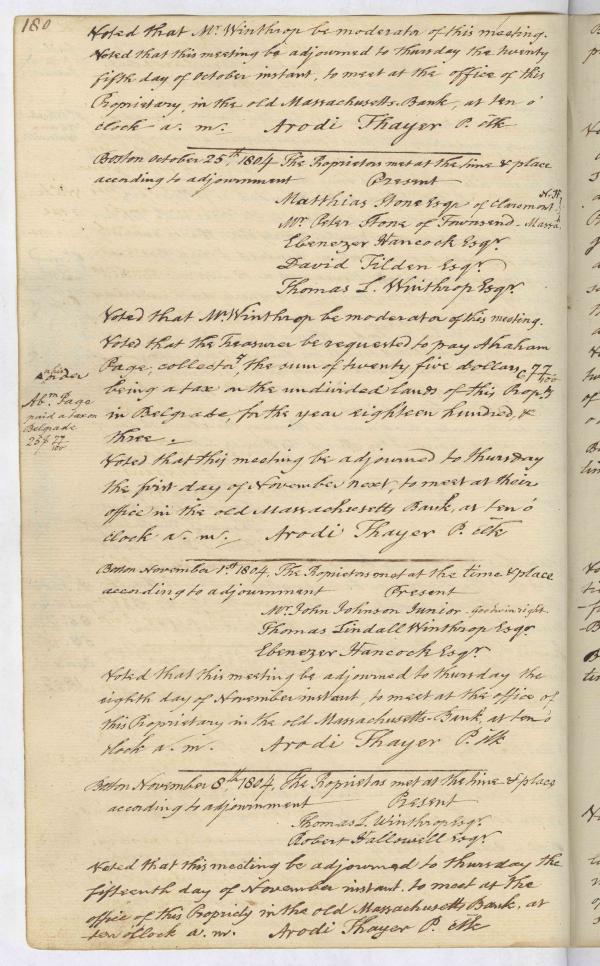 180
Voted that Mr. Winthrop be moderator of this meeting.
Voted that this meeting be adjourned to thursday the twenty
fifth day of October instant, to meet at the office of this
Propriatary, in the old Massachusetts-Bank, at ten o'
clock a. m. Arodi Thayer P. Clk
Boston October 25th, 1804 The Proprietors met at the time & place
according to adjournment Present
Matthias Stone Esqr of Claremont N.H
Mr. Peter Stone of Townsend - Massa.
Ebenezer Hancock Esqr.
David Tilden Esqr.
Thomas L. Winthrop Esqr.
Voted that Mr Winthrop be moderator of this meeting.
Voted that the Treasurer be requested to pay Abraham
Page, collector, the sum of twenty five dollars C. 77/100
being a tax on the undivided lands of this Propty
in Belgrade, for the year eighteen hundred, &
three.
Abm. Page
paid a tax on
Belgrade
25$ 77/100
Voted that this meeting be adjourned to thursday
the first day of November next, to meet at their
office in the old Massachusetts Bank, at ten o'
clock a. m. Arodi Thayer P. Clk
Boston November 1st 1804, The Proprietors met at the time & place
according to adjournment Present
Mr. John Johnson Junior - Goodwin right.
Thomas Lindall Winthrop Esqr.
Ebenezer Hancock Esqr.
Voted that this meeting be adjourned to thursday the
eighth day of November instant, to meet at the office of
this Propriatary in the old Massachusetts-Bank, at ten o'
clock a. m. Arodi Thayer P. Clk
Boston November 8th, 1804, The Proprietors met at the time & place
according to adjournment Present
Thomas L. Winthrop Esqr.
Robert Hallowell Esqr.
Voted that this meeting be adjourned to thursday the
fifteenth day of November instant, to meet at the
office of this Propriety in the old Massachusetts Bank, at
ten o'clock a. m. Arodi Thayer P. Clk